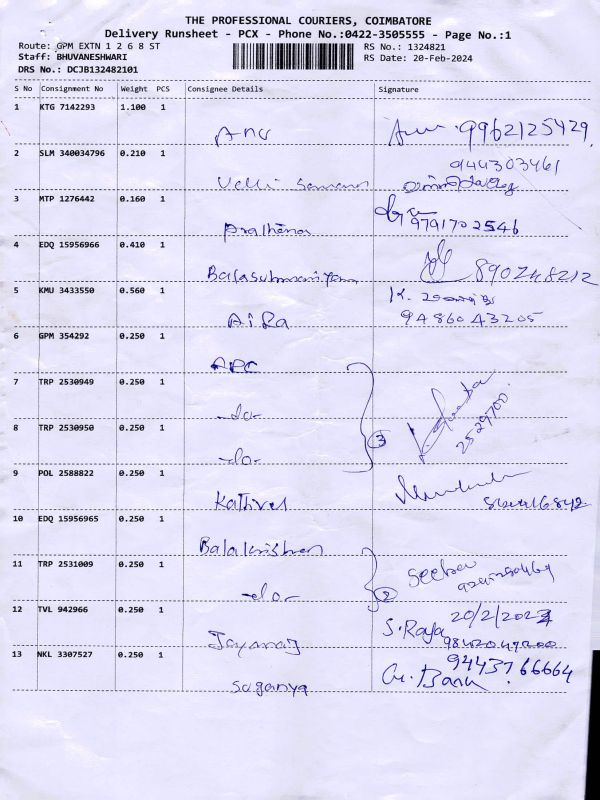 THE PROFESSIONAL COURIERS, COIMBATORE
Delivery Runsheet - PCX - Phone No.:0422-3505555 - Page No.:1
Route: GPM EXTN 1 2 6 8 ST
RS No.: 1324821
Staff: BHUVANESHWARI
RS Date: 20-Feb-2024
DRS No.: DCJB132482101
S No Consignment No Weight PCS Consignee Details Signature
1 KTG 7142293 1.100 1
Anu 9962125429
2 SLM 340034796 0.210 1
944303461
Velli
3 MTP 1276442 0.160 1
Prathana 9791702546
4 EDQ 15956966 0.410 1
Balasubramaniyam 890248212
5 KMU 3433550 0.560 1
K.
AiRa 9486043205
6 GPM 354292 0.250 1
APC
7 TRP 2530949 0.250 1
-do-
8 TRP 2530950 0.250 1
3 2529700
-do-
9 POL 2588822 0.250 1
Kathirvel
10 EDQ 15956965 0.250 1
Balakrishnan
11 TRP 2531009 0.250 1
Seetha
-do- 2
12 TVL 942966 0.250 1
20/2/2024
Jayaraj S. Raja
13 NKL 3307527 0.250 1
9443766664
Suganya